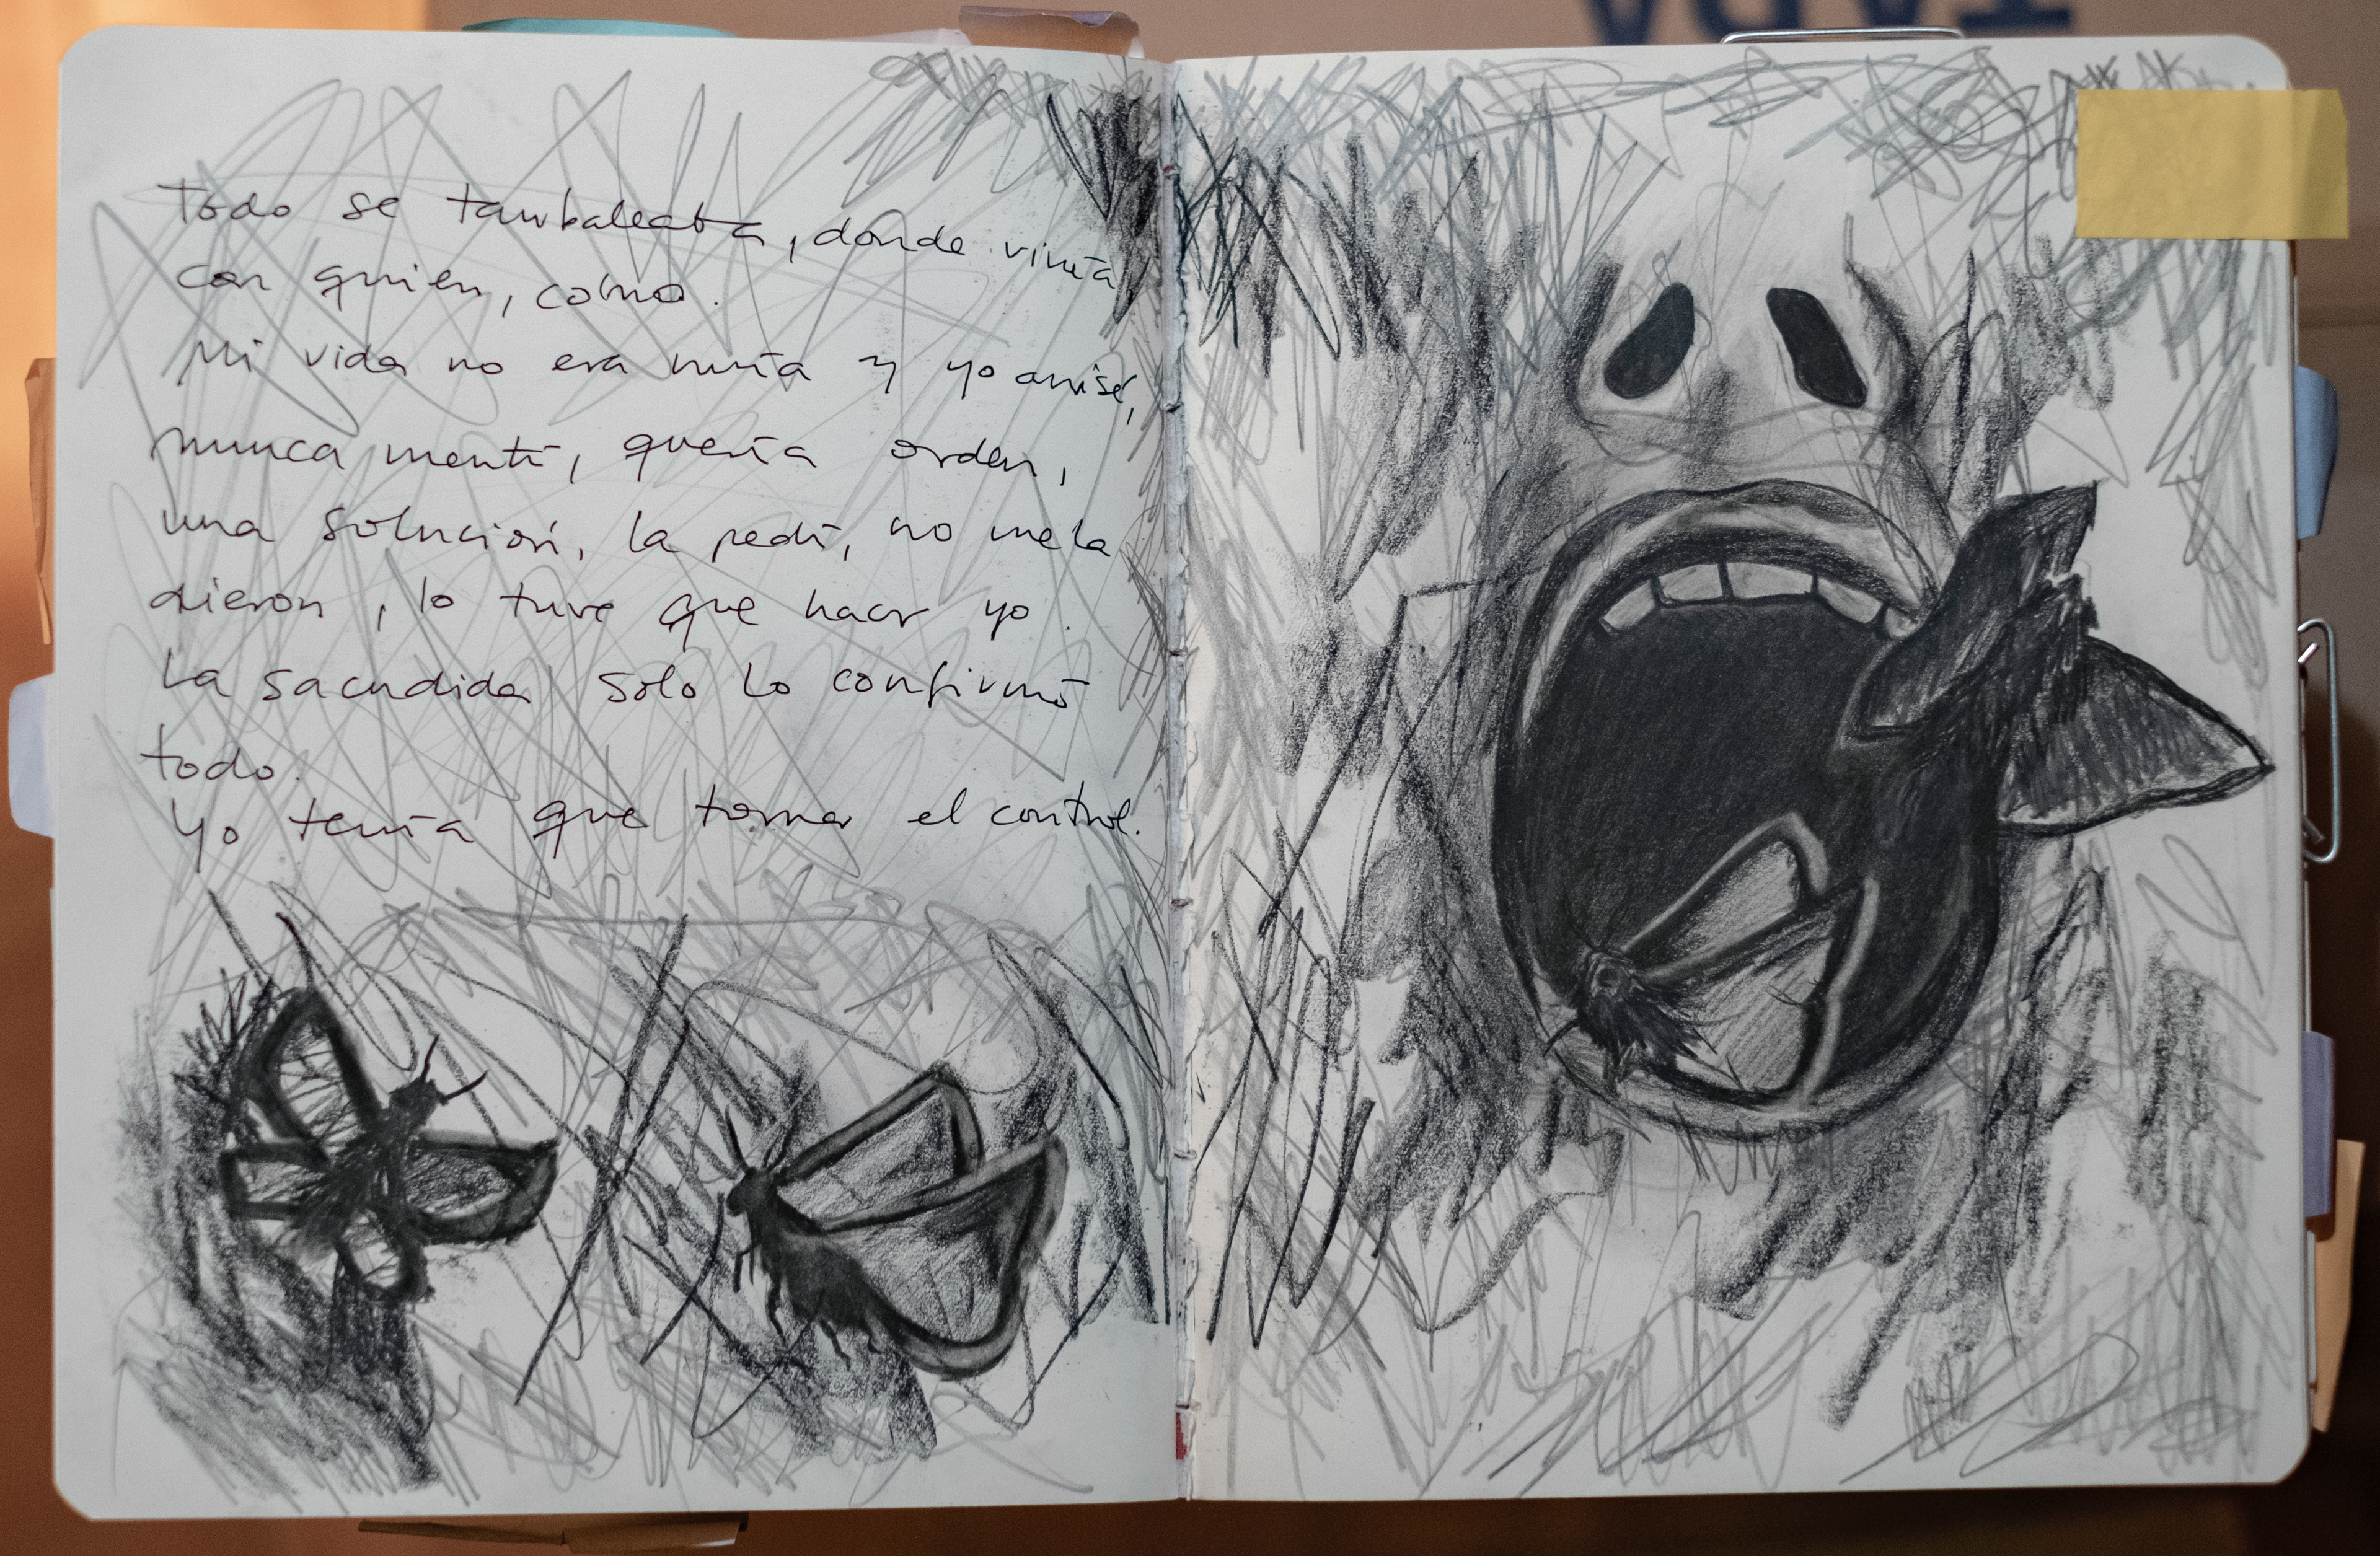 TAPA
Todo se tambaleaba, donde vivía
con quien, como.
Mi vida no era mía y yo avisé,
nunca mentí, quería orden,
una solución, la pedí, no me la
dieron, lo tuve que hacer yo.
La sacudida solo lo confirmó
todo.
Yo tenía que tomar el control.